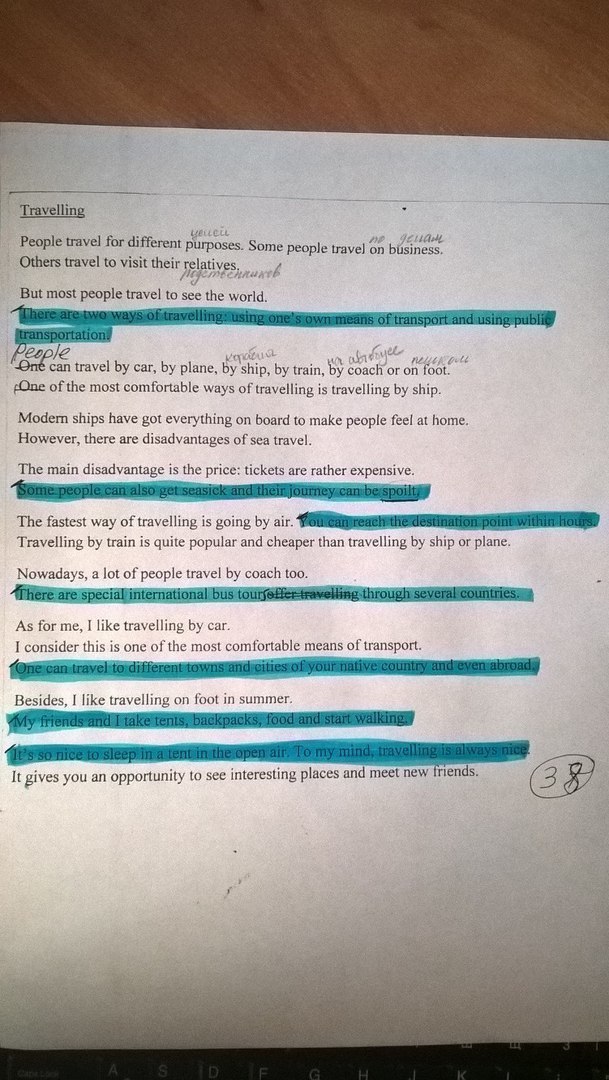 Travelling
целей
по делам
People travel for different purposes. Some people travel on business.
Others travel to visit their relatives.
родственников
But most people travel to see the world.
There are two ways of travelling: using one's own means of transport and using public
transportation.
People
корабля на автобусе пешком
One can travel by car, by plane, by ship, by train, by coach or on foot.
One of the most comfortable ways of travelling is travelling by ship.
Modern ships have got everything on board to make people feel at home.
However, there are disadvantages of sea travel.
The main disadvantage is the price: tickets are rather expensive.
Some people can also get seasick and their journey can be spoilt.
The fastest way of travelling is going by air. You can reach the destination point within hours.
Travelling by train is quite popular and cheaper than travelling by ship or plane.
Nowadays, a lot of people travel by coach too.
There are special international bus tours offer travelling through several countries.
As for me, I like travelling by car.
I consider this is one of the most comfortable means of transport.
One can travel to different towns and cities of your native country and even abroad.
Besides, I like travelling on foot in summer.
My friends and I take tents, backpacks, food and start walking.
It's so nice to sleep in a tent in the open air. To my mind, travelling is always nice.
It gives you an opportunity to see interesting places and meet new friends.
38
Caps Lock A S D F G H J K L